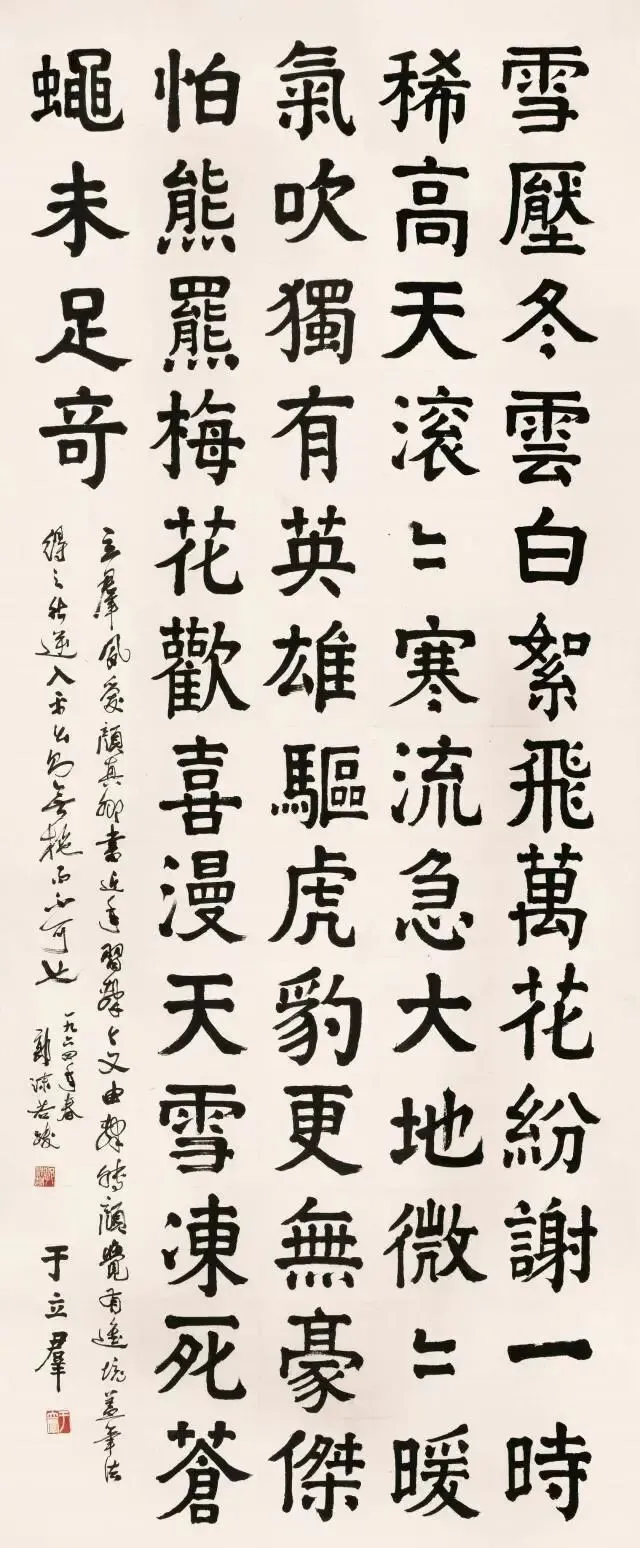 雪壓冬雲白絮飛萬花紛謝一時
稀高天滚〻寒流急大地微〻暖
氣吹獨有英雄驅虎豹更無豪傑
怕熊羆梅花歡喜漫天雪凍死蒼
蠅未足竒
立羣夙愛顏真卿書近年習隸由隸轉顏覺有進境蓋筆法
得之於逆入平出不可也
一九六四年春
郭沫若跋
于立羣